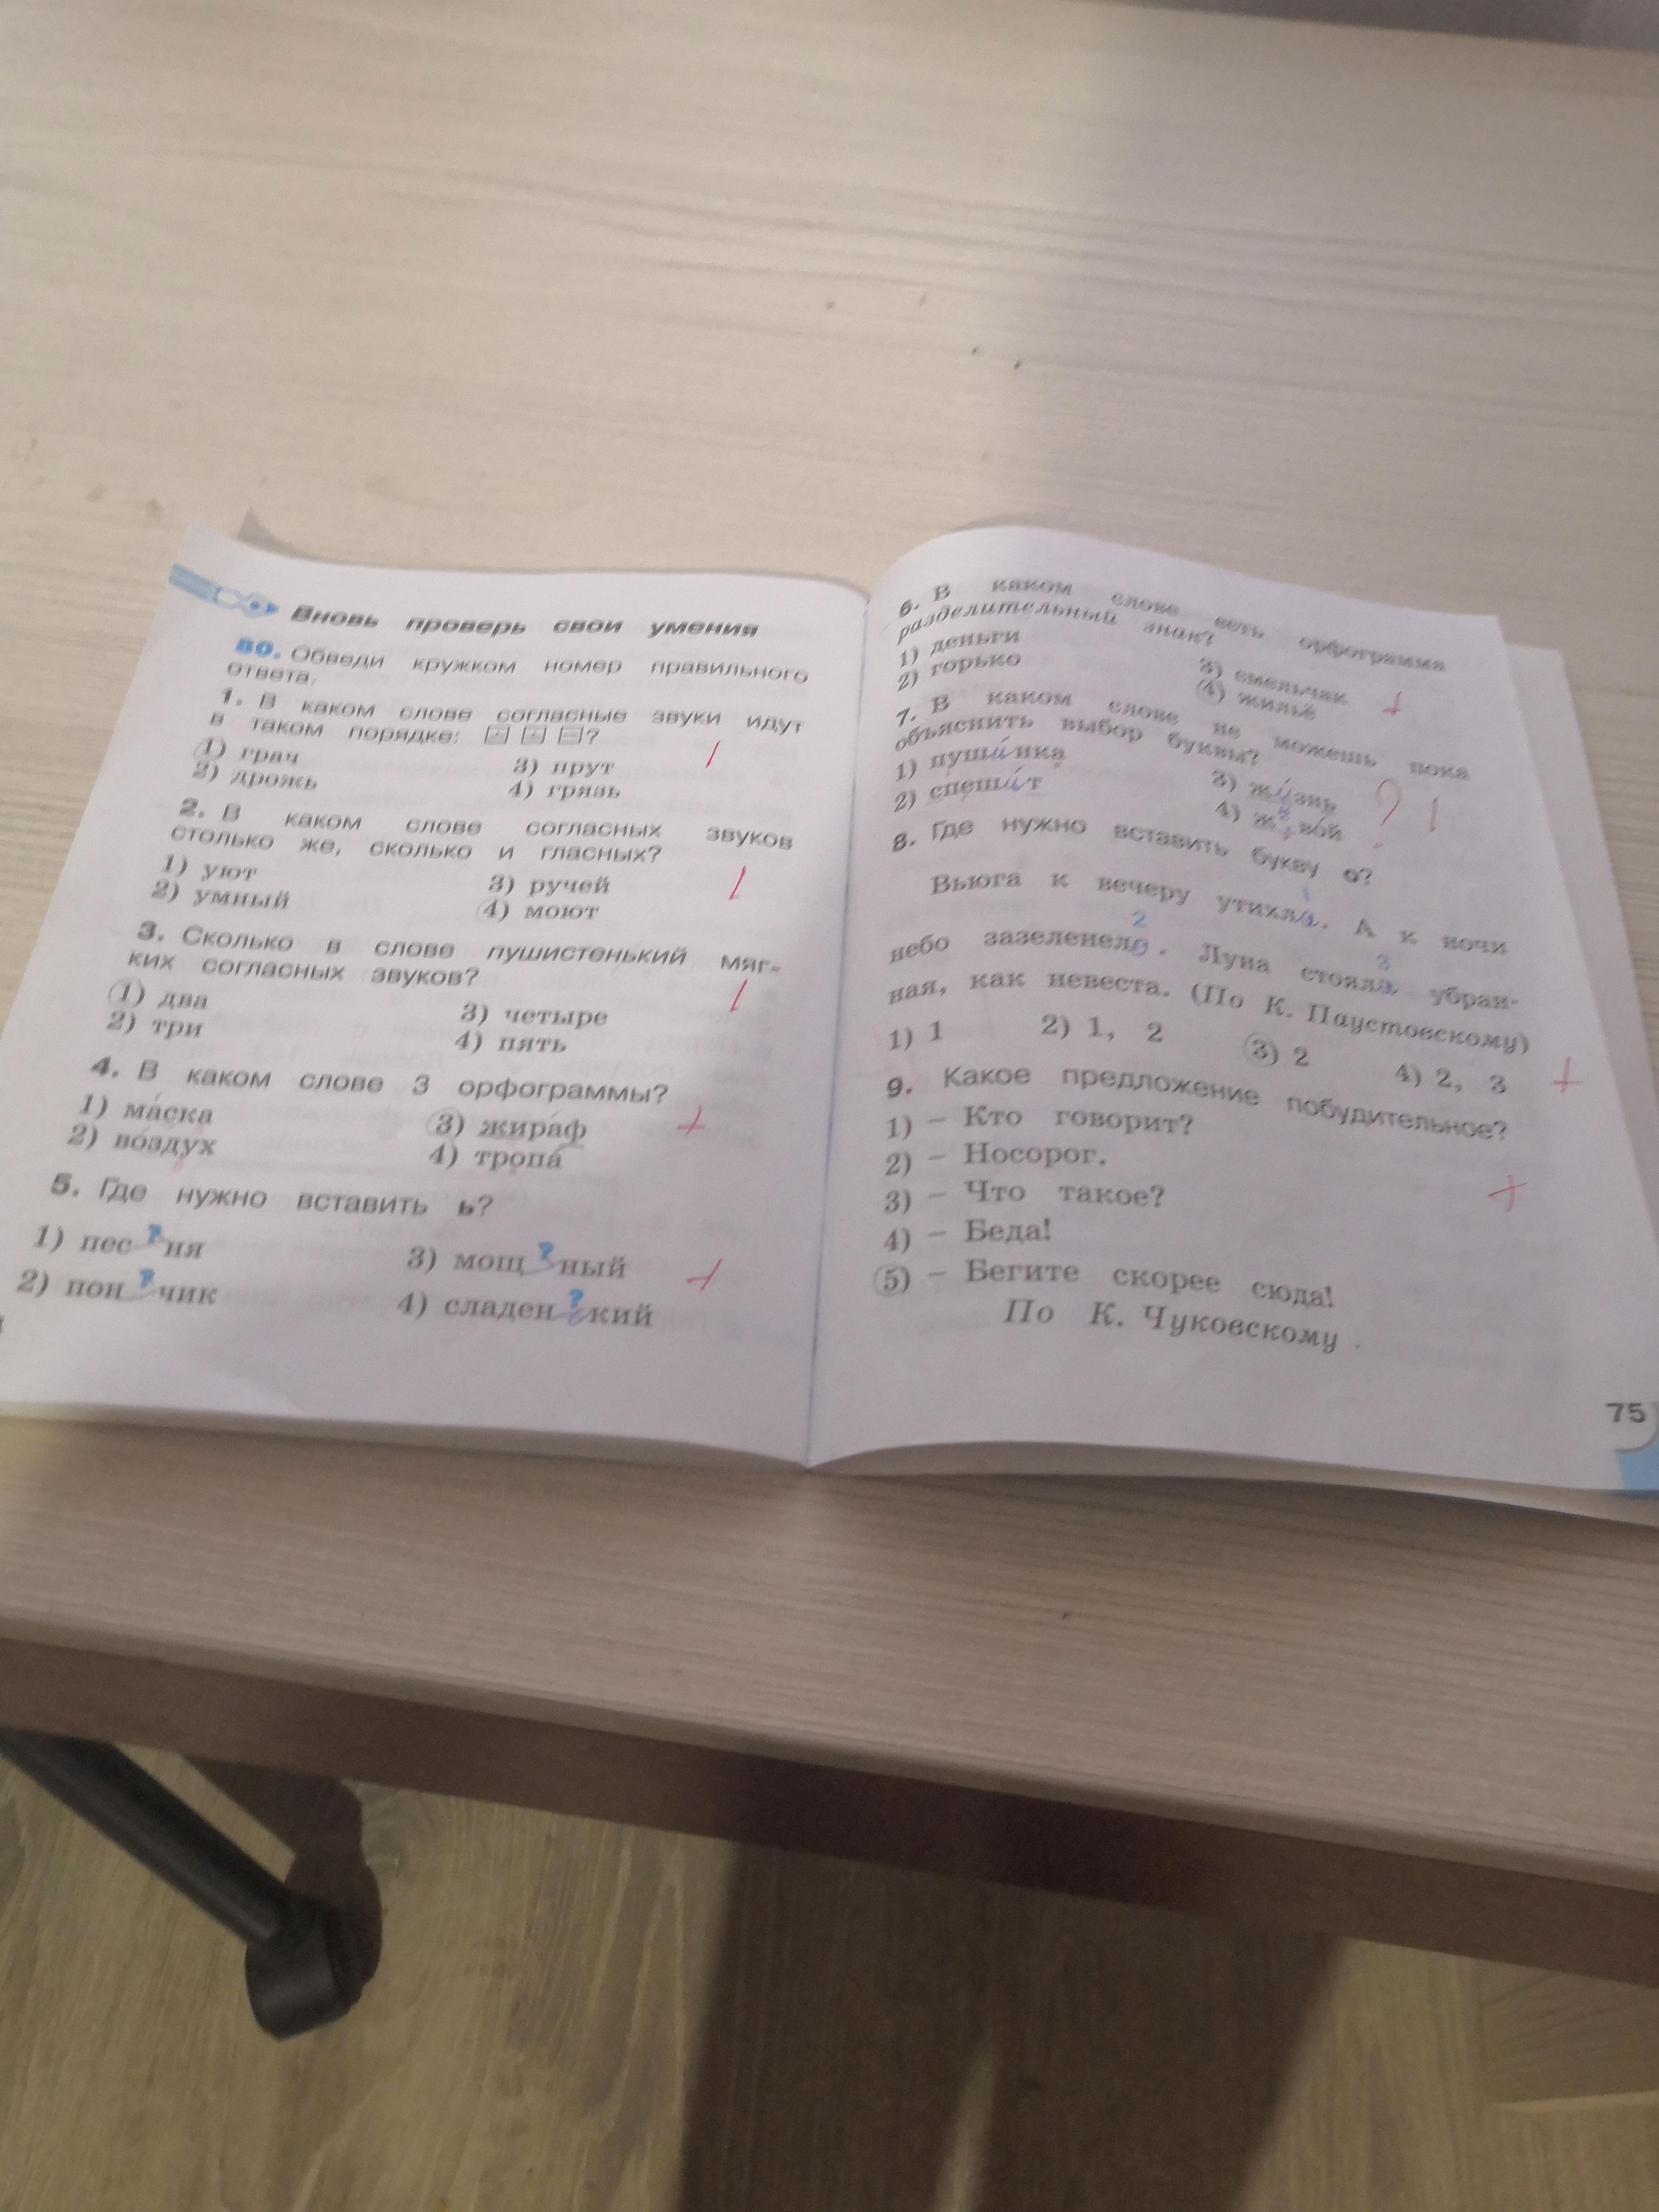 Вновь проверь свои умения
80. Обведи кружком номер правильного
ответа.
1. В каком слове согласные звуки идут
в таком порядке: ?
1) грач
2) дрожь
3) прут
4) грязь
2. В каком слове согласных звуков
столько же, сколько и гласных?
1) уют
2) умный
3) ручей
4) моют
3. Сколько в слове пушистенький мяг-
ких согласных звуков?
1) два
2) три
3) четыре
4) пять
4. В каком слове 3 орфограммы?
1) ма́ска
2) во́здух
3) жира́ф
4) тропа́
5. Где нужно вставить ь?
1) пес ? ня
2) пон ? чик
3) мощ ? ный
4) сладен ? кий
6. В каком слове есть орфограмма
разделительный знак?
1) деньги
2) горько
3) смельчак
4) жильё
7. В каком слове не можешь пока
объяснить выбор буквы?
1) пуши́нка
2) спеши́т
3) жи́знь
4) живо́й
8. Где нужно вставить букву о?
Вьюга к вечеру утихла. А к ночи
небо зазеленело. Луна стояла убран-
ная, как невеста. (По К. Паустовскому)
1) 1 2) 1, 2 3) 2 4) 2, 3
9. Какое предложение побудительное?
1) – Кто говорит?
2) – Носорог.
3) – Что такое?
4) – Беда!
5) – Бегите скорее сюда!
По К. Чуковскому
75